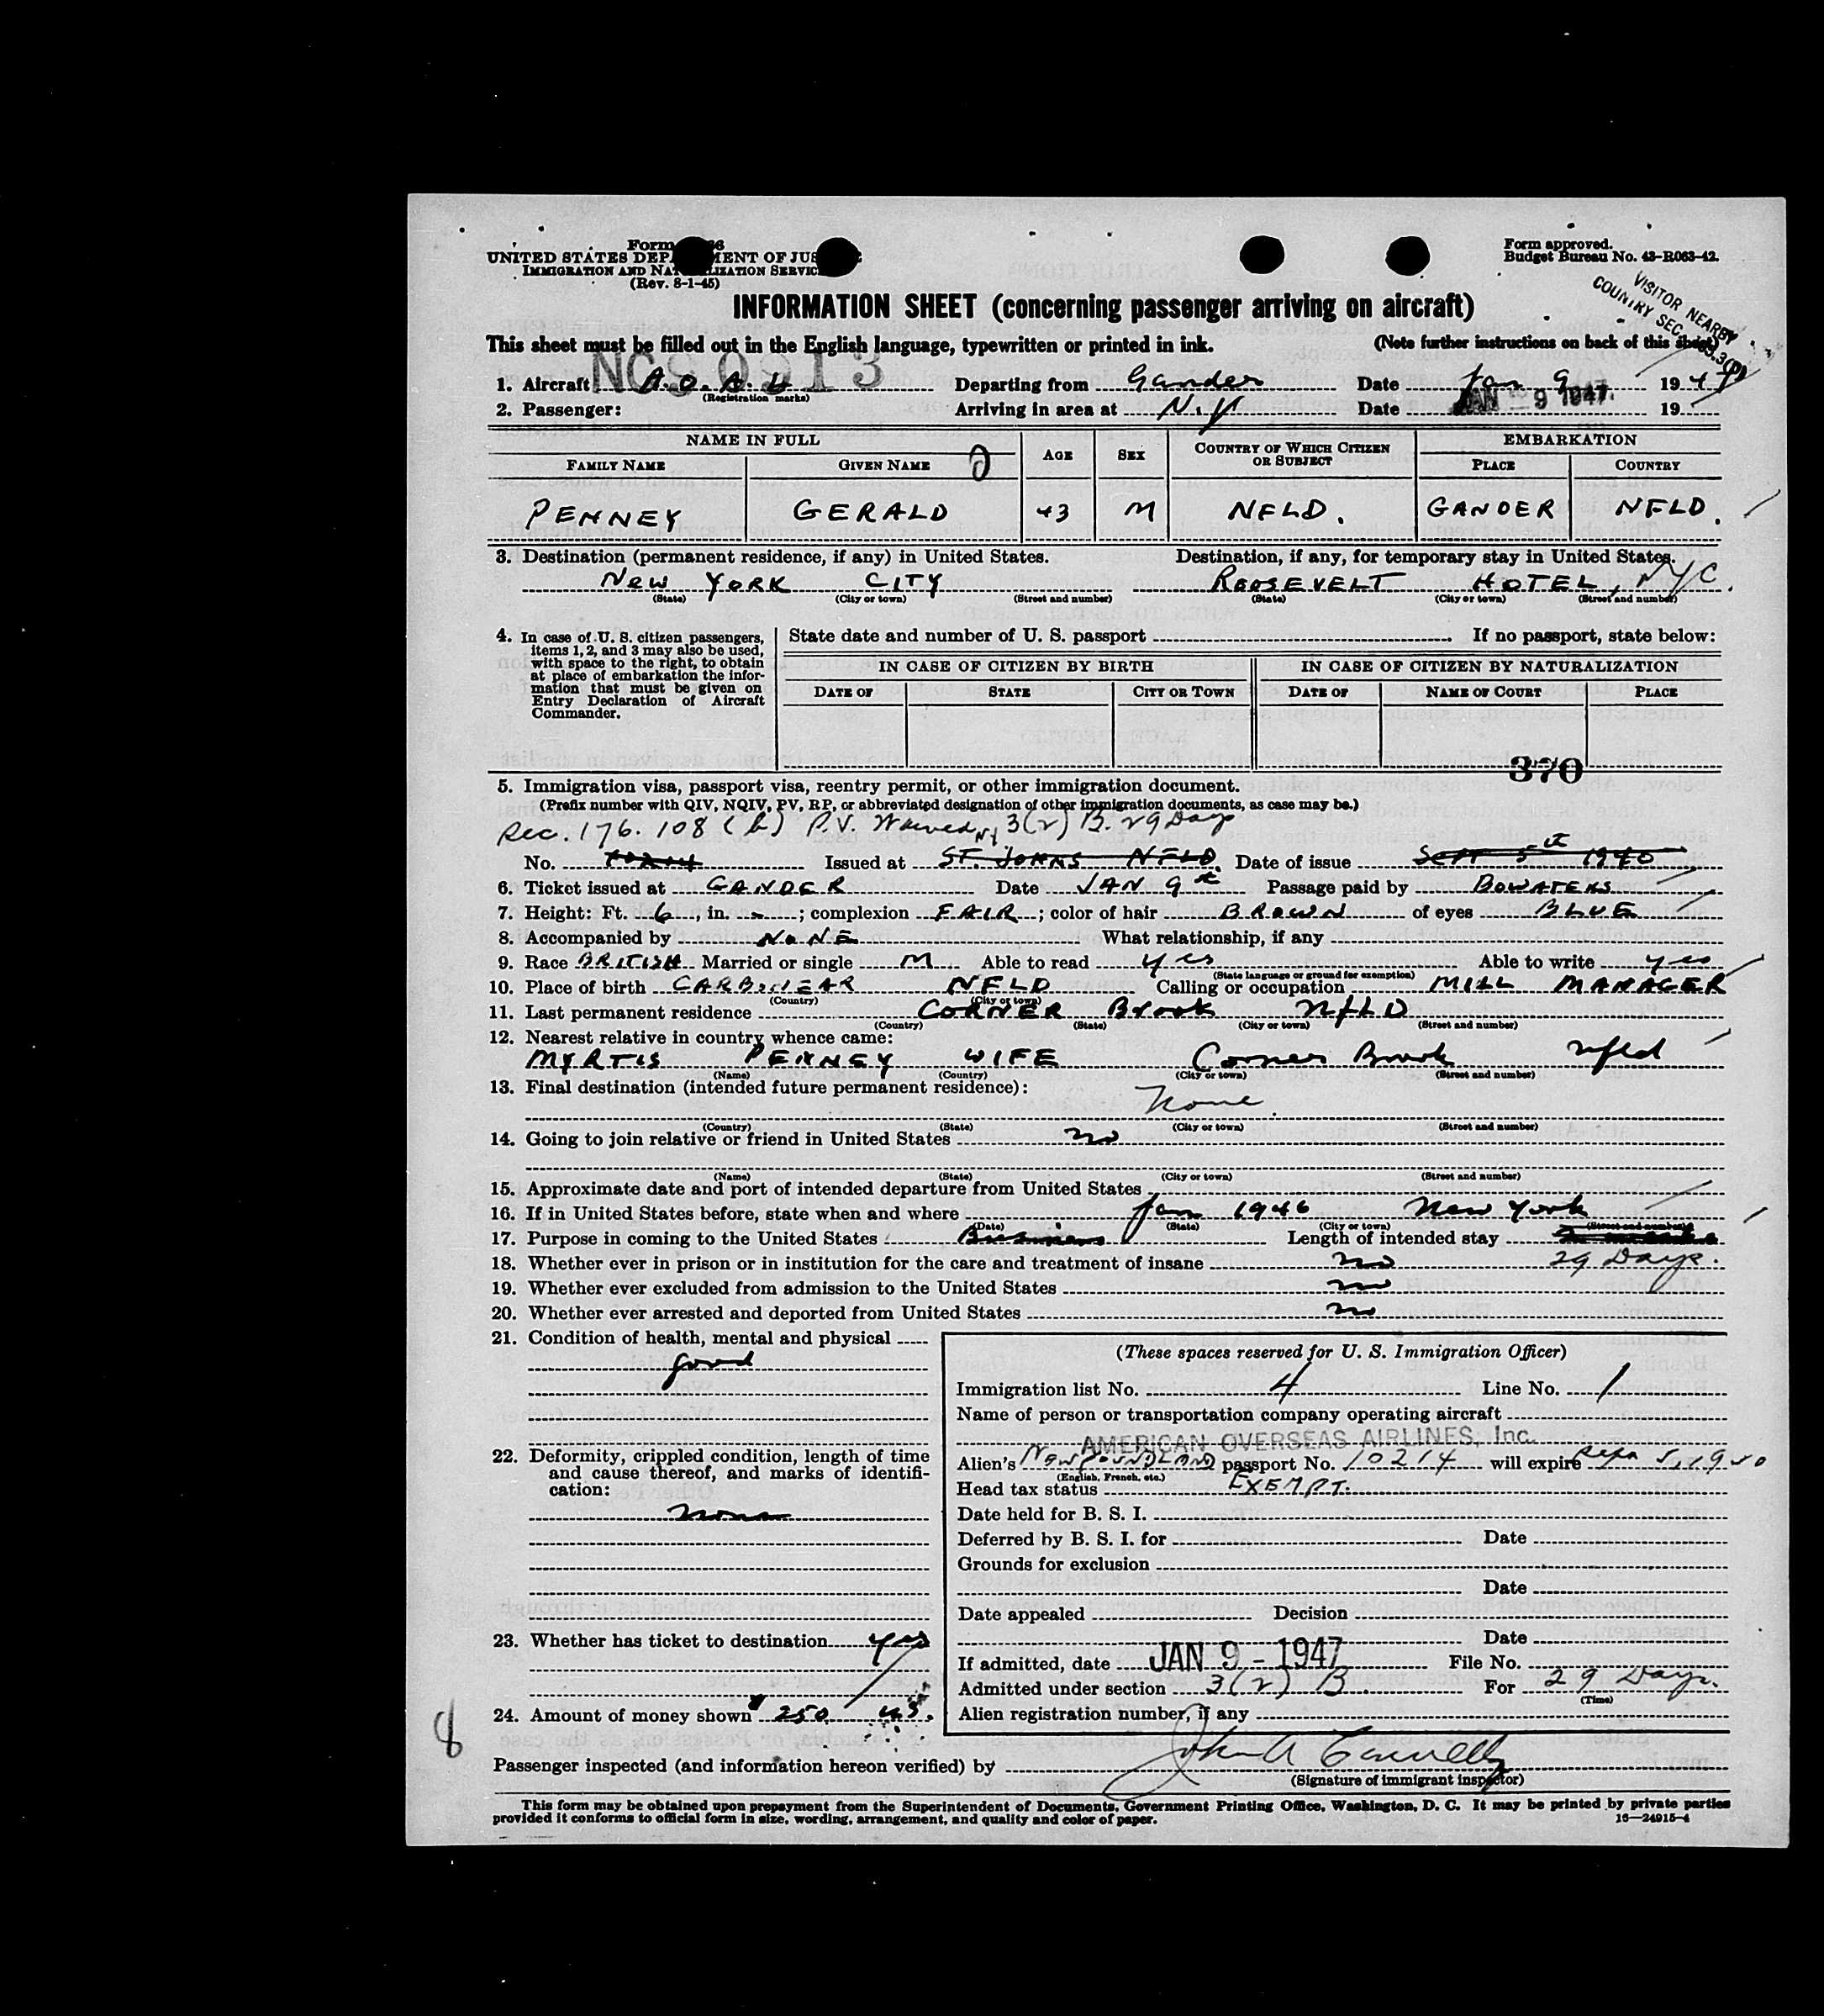 Form
UNITED STATES DEPARTMENT OF JUSTICE
IMMIGRATION AND NATURALIZATION SERVICE
(Rev. 8-1-45)
Form approved.
Budget Bureau No. 43-R063-42.
VISITOR NEARBY
COUNTRY SEC.
INFORMATION SHEET (concerning passenger arriving on aircraft)
This sheet must be filled out in the English language, typewritten or printed in ink. (Note further instructions on back of this sheet)
1. Aircraft NC90913 A.O.A. Departing from Gander Date Jan 9 1947
(Registration marks)
2. Passenger: Arriving in area at N.Y. Date JAN 9 1947 19
NAME IN FULL AGE SEX COUNTRY OF WHICH CITIZEN OR SUBJECT EMBARKATION
FAMILY NAME GIVEN NAME PLACE COUNTRY
PENNEY GERALD 43 M NFLD. GANDER NFLD.
3. Destination (permanent residence, if any) in United States. Destination, if any, for temporary stay in United States.
NEW YORK CITY ROOSEVELT HOTEL, NYC
(State) (City or town) (Street and number) (State) (City or town) (Street and number)
4. In case of U. S. citizen passengers, items 1, 2, and 3 may also be used, with space to the right, to obtain at place of embarkation the information that must be given on Entry Declaration of Aircraft Commander.
State date and number of U. S. passport If no passport, state below:
IN CASE OF CITIZEN BY BIRTH IN CASE OF CITIZEN BY NATURALIZATION
DATE OF STATE CITY OR TOWN DATE OF NAME OF COURT PLACE
370
5. Immigration visa, passport visa, reentry permit, or other immigration document.
(Prefix number with QIV, NQIV, PV, RP, or abbreviated designation of other immigration documents, as case may be.)
Sec. 176.108 (b) P.V. Waived NY 3(2) B. 29 Days
No. 10214 Issued at ST. JOHNS NFLD Date of issue SEPT 5th 1940
6. Ticket issued at GANDER Date JAN 9th Passage paid by BOWATERS
7. Height: Ft. 6, in. - ; complexion FAIR; color of hair BROWN of eyes BLUE
8. Accompanied by NONE What relationship, if any
9. Race BRITISH Married or single M Able to read yes Able to write yes
(State language or ground for exemption)
10. Place of birth CARBONEAR NFLD Calling or occupation MILL MANAGER
(Country) (City or town)
11. Last permanent residence CORNER Brook NFLD
(Country) (State) (City or town) (Street and number)
12. Nearest relative in country whence came:
MYRTIS PENNEY WIFE Corner Brook Nfld
(Name) (Country) (City or town) (Street and number)
13. Final destination (intended future permanent residence):
None.
(Country) (State) (City or town) (Street and number)
14. Going to join relative or friend in United States no
(Name) (State) (City or town) (Street and number)
15. Approximate date and port of intended departure from United States
16. If in United States before, state when and where Jan 1946 New York
(Date) (State) (City or town) (Street and number)
17. Purpose in coming to the United States Business Length of intended stay
29 Days.
18. Whether ever in prison or in institution for the care and treatment of insane no
19. Whether ever excluded from admission to the United States no
20. Whether ever arrested and deported from United States no
21. Condition of health, mental and physical
good
22. Deformity, crippled condition, length of time and cause thereof, and marks of identification:
none
23. Whether has ticket to destination yes
24. Amount of money shown $250 US.
8
(These spaces reserved for U. S. Immigration Officer)
Immigration list No. 4 Line No. 1
Name of person or transportation company operating aircraft
AMERICAN OVERSEAS AIRLINES, Inc.
Alien's NEWFOUNDLAND passport No. 10214 will expire
(English, French, etc.)
Head tax status EXEMPT.
Date held for B. S. I.
Deferred by B. S. I. for Date
Grounds for exclusion
Date
Date appealed Decision
Date
If admitted, date JAN 9 - 1947 File No.
Admitted under section 3(2) B. For 29 Days.
(Time)
Alien registration number, if any
Passenger inspected (and information hereon verified) by John A Connelly
(Signature of immigrant inspector)
This form may be obtained upon prepayment from the Superintendent of Documents, Government Printing Office, Washington, D. C. It may be printed by private parties
provided it conforms to official form in size, wording, arrangement, and quality and color of paper. 16—24915-4